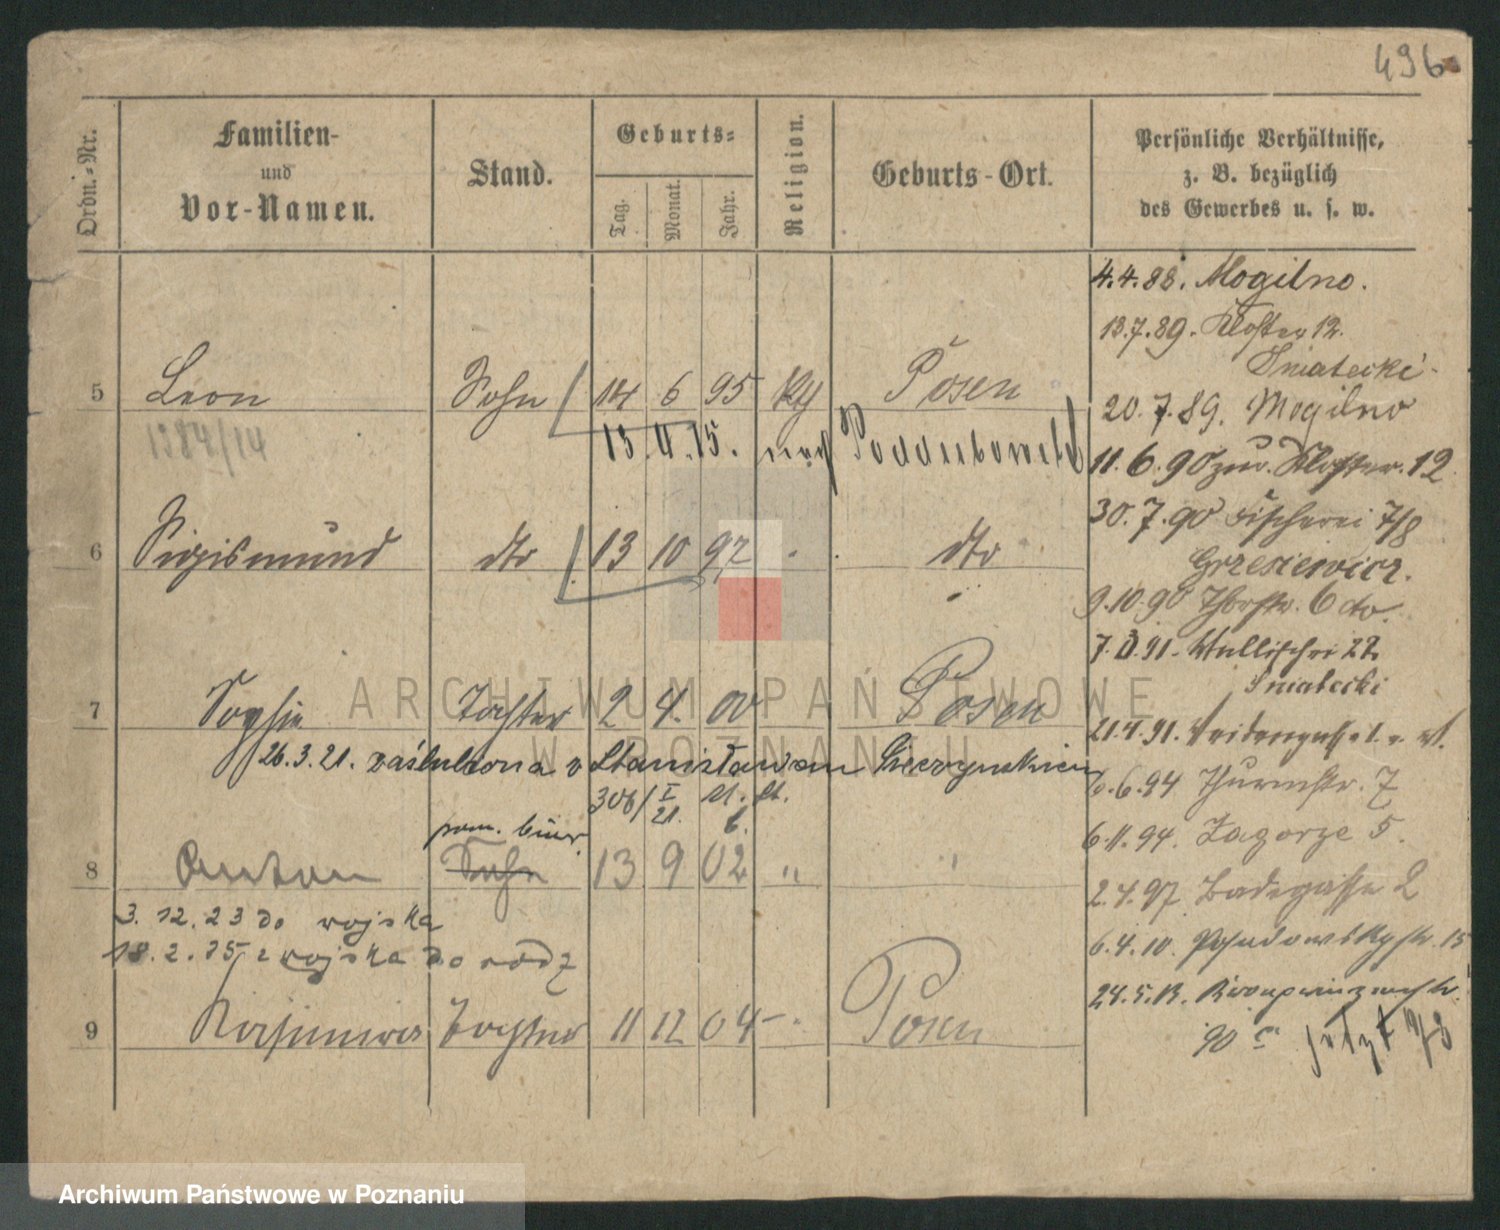 496
Ordn.-Nr.
Familien-
und
Vor-Namen.
Stand.
Geburts-
Tag.
Monat.
Jahr.
Religion.
Geburts-Ort.
Persönliche Verhältnisse,
z. B. bezüglich
des Gewerbes u. s. w.
4.4.88. Mogilno.
13.7.89. Kloster 12.
Sniatecki
20.7.89. Mogilno
11.6.90 zur. Kloster. 12
30.7.90 Fischerei 7/8
Grzesiewicz.
9.10.90 Thorstr. 6 dto.
7.3.91. Wallischei 22
Sniatecki
21.4.91.
6.94 Thurmstr. 7
6.11.94. Zagorze 5.
2.4.97. Badegasse 2
6.4.10. 15
24.5.13. Kronprinzenstr.
90 jetzt
5 Leon Sohn 14 6 95 Posen
1384/14 13.4.15. nach
6 Sigismund dto 13 10 97 dto
7 Sophie Tochter 2 4. 00 Posen
26.3.21. zaślubiona z Stanisławem
308/ I 21. 21. St.
pom. biur.
8 Anton Sohn 13 9 02 " "
3.12.23 do wojska
18.2.25 z wojska do rodz
9 Kasimira Tochter 11 12 04 Posen
ARCHIWUM PAŃSTWOWE
W POZNANIU
Archiwum Państwowe w Poznaniu